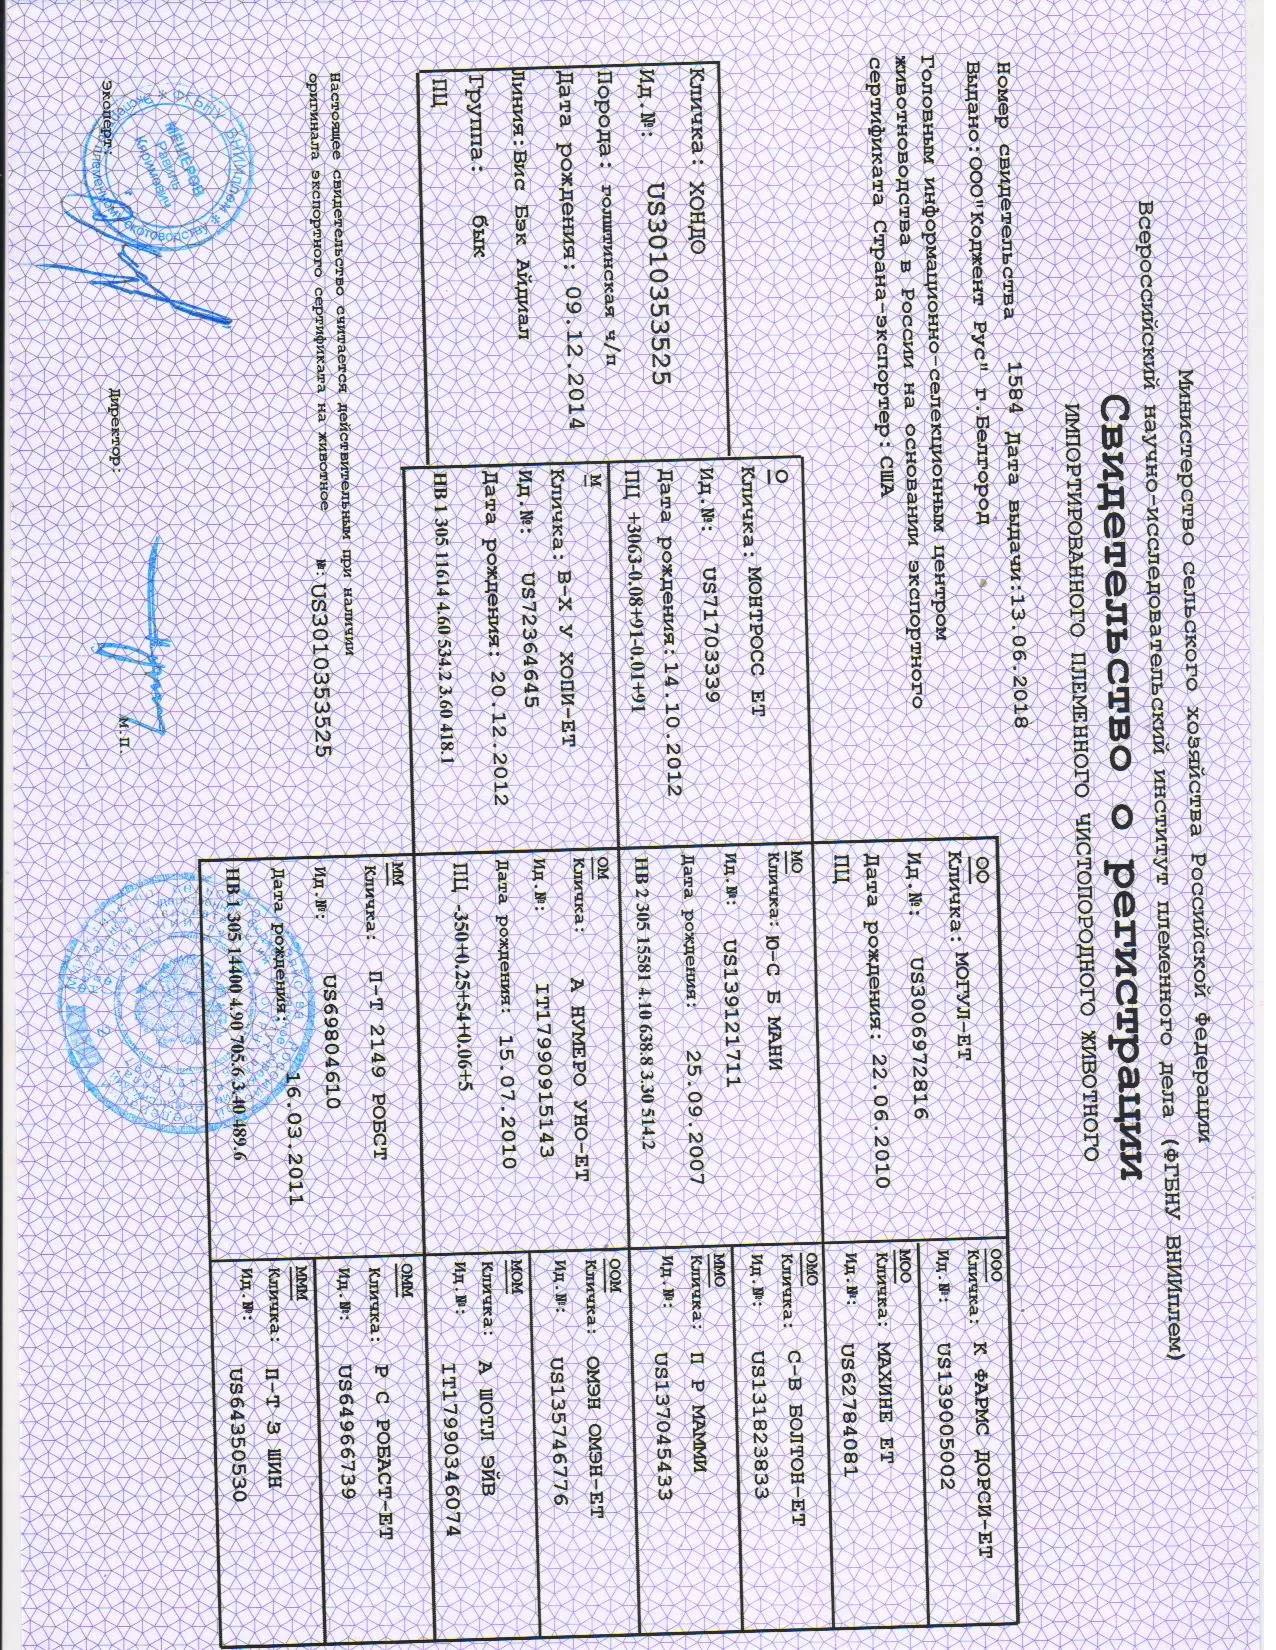 Министерство сельского хозяйства Российской Федерации
Всероссийский научно-исследовательский институт племенного дела (ФГБНУ ВНИИплем)
Свидетельство о регистрации
ИМПОРТИРОВАННОГО ПЛЕМЕННОГО ЧИСТОПОРОДНОГО ЖИВОТНОГО
Номер свидетельства 1584 Дата выдачи:13.06.2018
Выдано:ООО"Коджент Рус" г.Белгород
Головным информационно-селекционным центром
животноводства в России на основании экспортного
сертификата Страна-экспортер: США
Кличка: ХОНДО
Ид.№: US3010353525
Порода: голштинская ч/п
Дата рождения: 09.12.2014
Линия:Вис Бэк Айдиал
Группа: бык
ПЦ
О
Кличка: МОНТРОСС ЕТ
Ид.№: US71703339
Дата рождения:14.10.2012
ПЦ +3063-0.08+91-0.01+91
М
Кличка: В-Х У ХОПИ-ЕТ
Ид.№: US72364645
Дата рождения: 20.12.2012
НВ 1 305 11614 4.60 534.2 3.60 418.1
ОО
Кличка: МОГУЛ-ЕТ
Ид.№: US3006972816
Дата рождения: 22.06.2010
ПЦ
МО
Кличка: Ю-С Б МАНИ
Ид.№: US139121711
Дата рождения: 25.09.2007
НВ 2 305 15581 4.10 638.8 3.30 514.2
ОМ
Кличка: А НУМЕРО УНО-ЕТ
Ид.№: IT17990915143
Дата рождения: 15.07.2010
ПЦ -350+0.25+54+0.06+5
ММ
Кличка: П-Т 2149 РОБСТ
Ид.№: US69804610
Дата рождения: 16.03.2011
НВ 1 305 14400 4.90 705.6 3.40 489.6
ООО
Кличка: К ФАРМС ДОРСИ-ЕТ
Ид.№: US139005002
МОО
Кличка: МАХИНЕ ЕТ
Ид.№: US62784081
ОМО
Кличка: С-В БОЛТОН-ЕТ
Ид.№: US131823833
ММО
Кличка: П Р МАММИ
Ид.№: US137045433
ООМ
Кличка: ОМЭН ОМЭН-ЕТ
Ид.№: US135746776
МОМ
Кличка: А ШОТЛ ЭЙВ
Ид.№: IT17990346074
ОММ
Кличка: Р С РОБАСТ-ЕТ
Ид.№: US64966739
МММ
Кличка: П-Т З ШИН
Ид.№: US64350530
Настоящее свидетельство считается действительным при наличии
оригинала экспортного сертификата на животное №: US3010353525
Эксперт: Директор: М.П.
ФГБНУ ВНИИплем
МЕЩЕРОВ
Равиль
Каримович